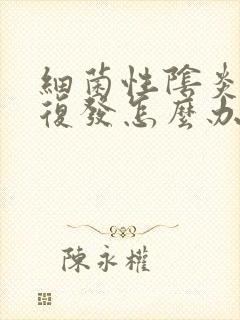 細菌性陰炎
復發怎麼办
陳永權